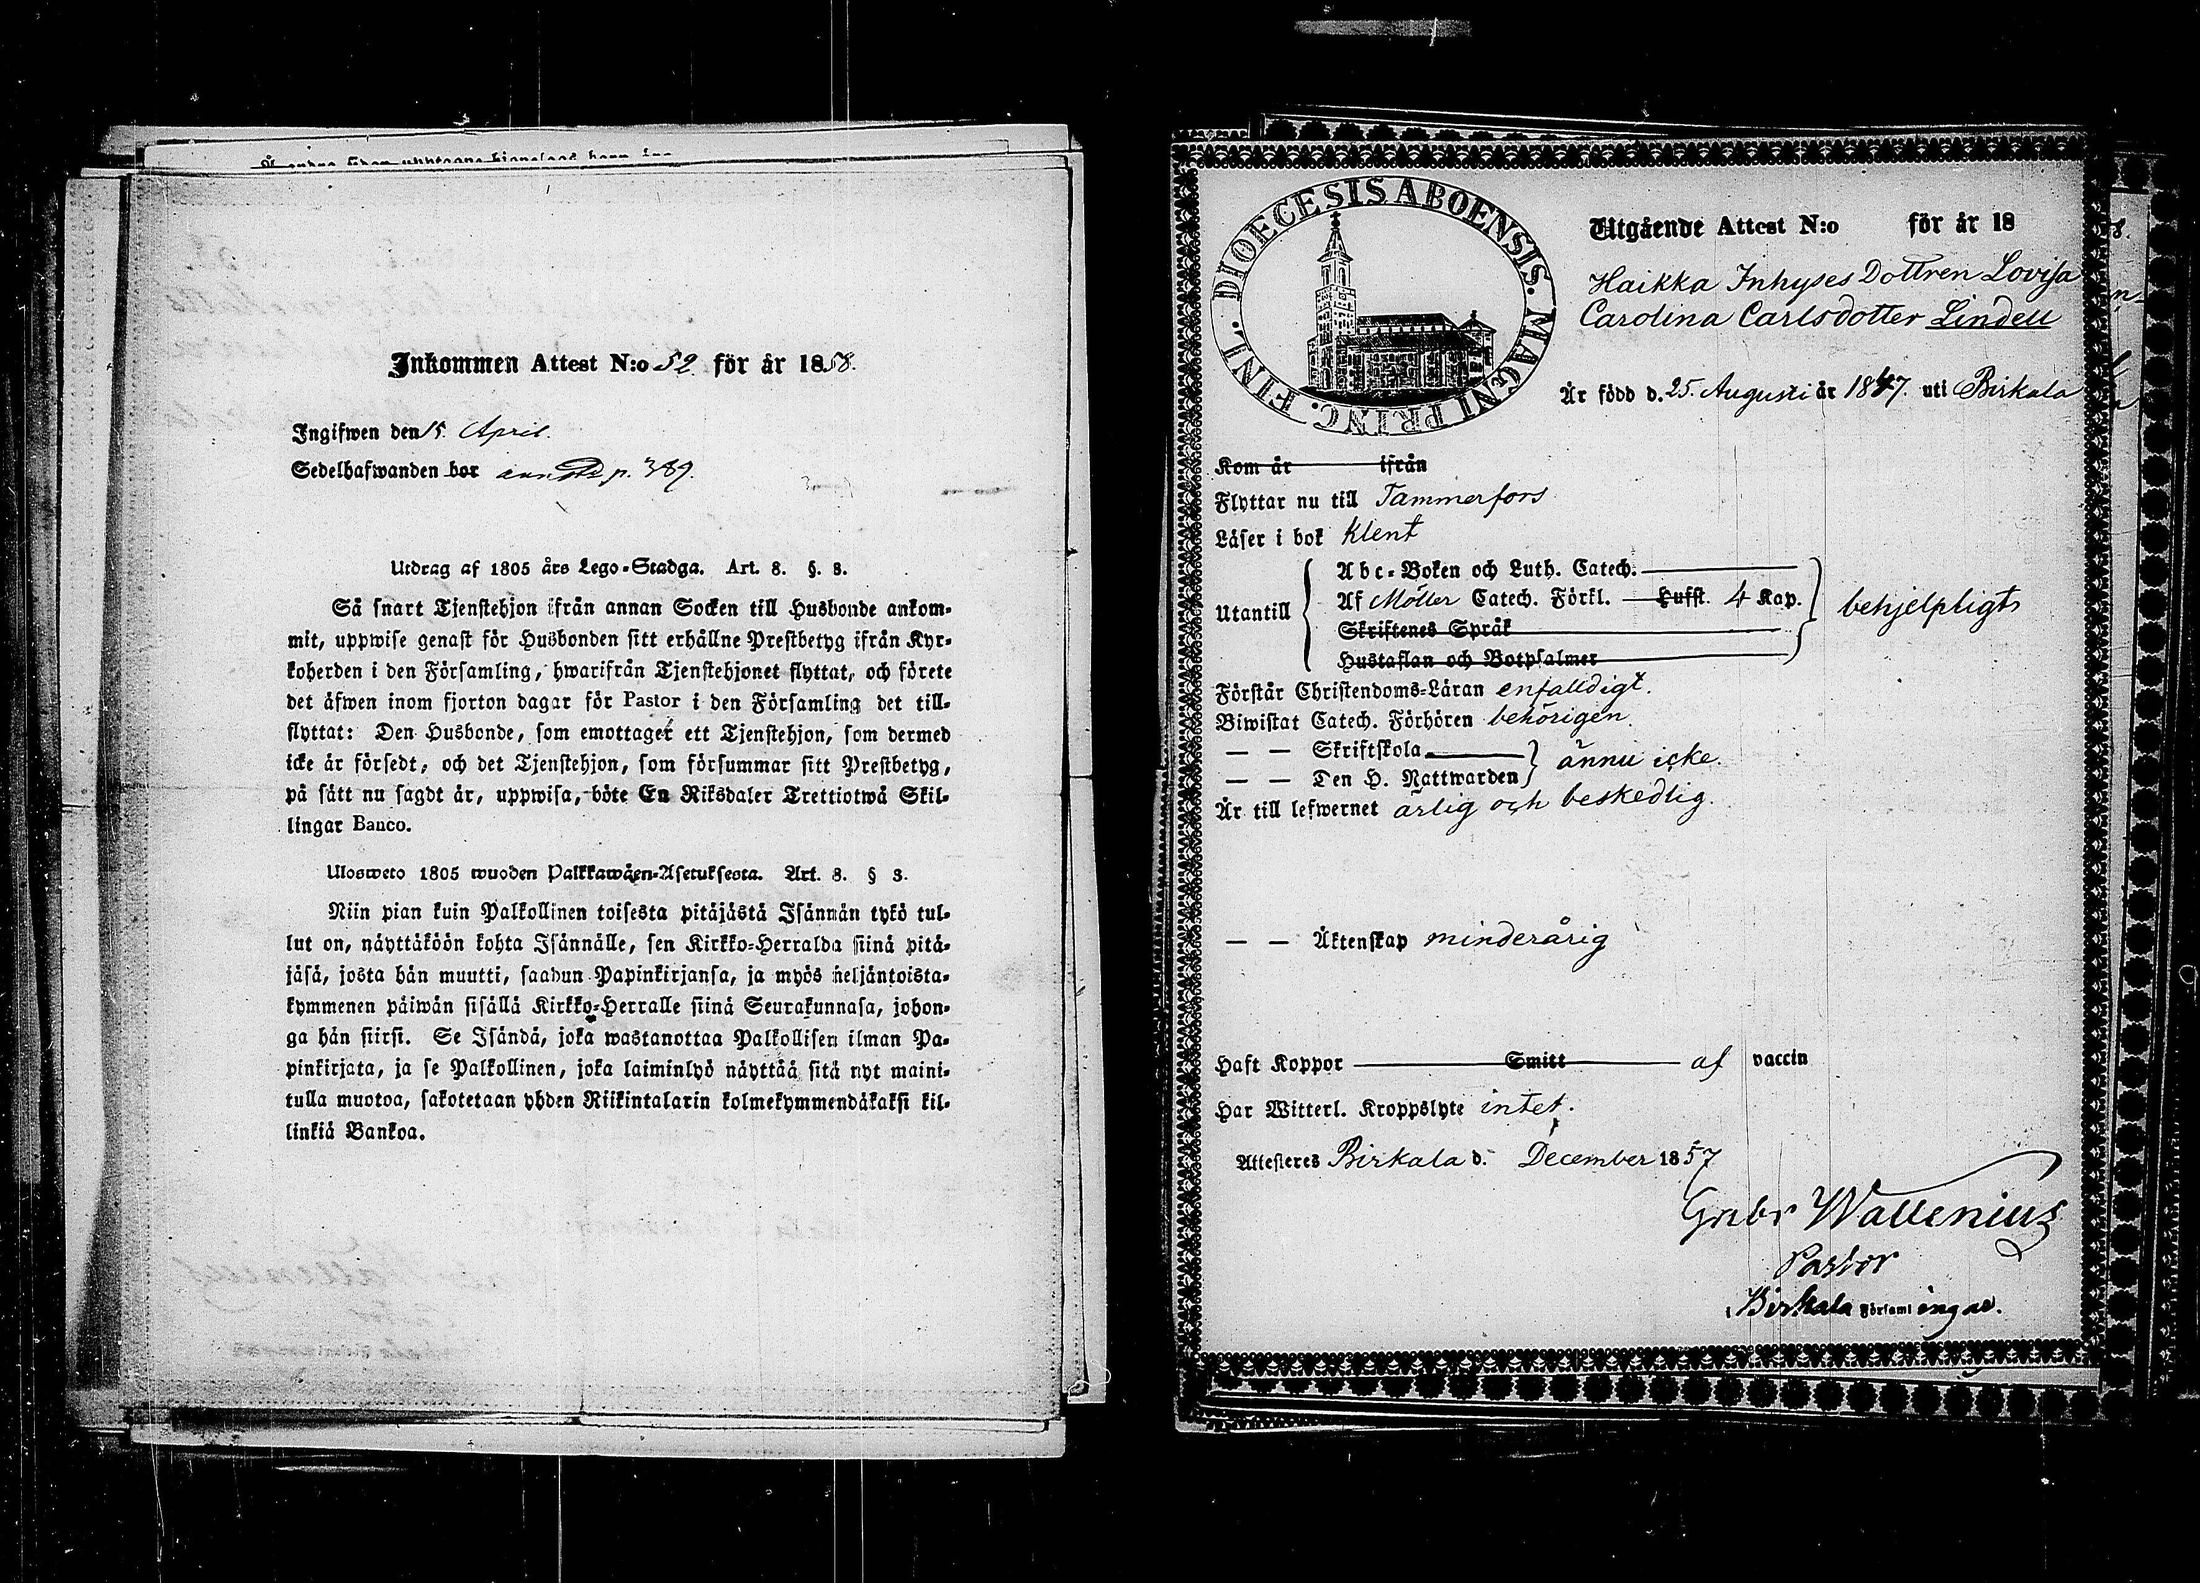 Inkommen Attest N:o 52 för år 1858.
Ingifwen den 15. April.
Sedelhafwanden bor p. 389.
Utdrag af 1805 års Lego-Stadga. Art. 8. §. 8.
Så snart Tjenstehjon ifrån annan Socken till Husbonde ankom-
mit, uppwise genast för Husbonden sitt erhållne Prestbetyg ifrån Kyr-
koherden i den Församling, hwarifrån Tjenstehjonet flyttat, och förete
det äfwen inom fjorton dagar för Pastor i den Församling det till-
flyttat: Den Husbonde, som emottager ett Tjenstehjon, som dermed
icke är försedt, och det Tjenstehjon, som försummar sitt Prestbetyg,
på sätt nu sagdt är, uppwisa, böte En Riksdaler Trettiotwå Skil-
lingar Banco.
Ulosweto 1805 wuoden Palkkawäen-Asetuksesta. Art. 8. § 8.
Niin pian kuin Palkollinen toisesta pitäjästä Isännän tykö tul-
lut on, näyttäköön kohta Isännälle, sen Kirkko-Herralda siinä pitä-
jäsä, josta hän muutti, saadun Papinkirjansa, ja myös neljäntoista-
kymmenen päiwän sisällä Kirkko-Herralle siinä Seurakunnasa, johon-
ga hän siirsi. Se Isändä, joka wastanottaa Palkollisen ilman Pa-
pinkirjata, ja se Palkollinen, joka laiminlyö näyttää sitä nyt maini-
tulla muotoa, sakotetaan yhden Riikintalarin kolmekymmendäkaksi kil-
linkiä Bankoa.
DIOECESIS ABOENSIS. MAGNI PRINC. FINL.
Utgående Attest N:o för år 18
Haikka Inhyses Dottren Lovisa
Carolina Carlsdotter Lindell
Är född d. 25. Augusti år 1847. uti Birkala
Kom år ifrån
Flyttar nu till Tammerfors
Läser i bok klent
Utantill
Abc-Boken och Luth. Catech.
Af Möller Catech. Förkl. Hufst. 4 Kap.
Skriftenes Språk
Hustaflan och Botpsalmer
behjelpligt
Förstår Christendoms-Läran enfalldigt.
Biwistat Catech. Förhören behörigen.
— — Skriftskola
— — Den H. Nattwarden
ännu icke.
Är till lefwernet ärlig och beskedlig.
— — Äktenskap minderårig
Haft Koppor Smitt af vaccin
Har Witterl. Kroppslyte intet.
Attesteres Birkala d. December 1857
Gabr Wallenius
Pastor
Birkala Församl ingar.